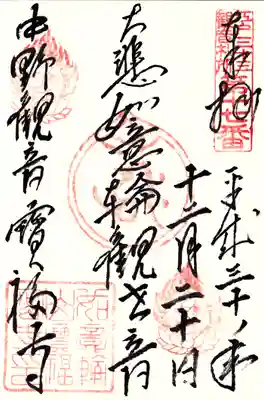 奉拝
第十七番
平成三十年
十二月二十日
大悲如意輪観世音
中野観音寶福寺